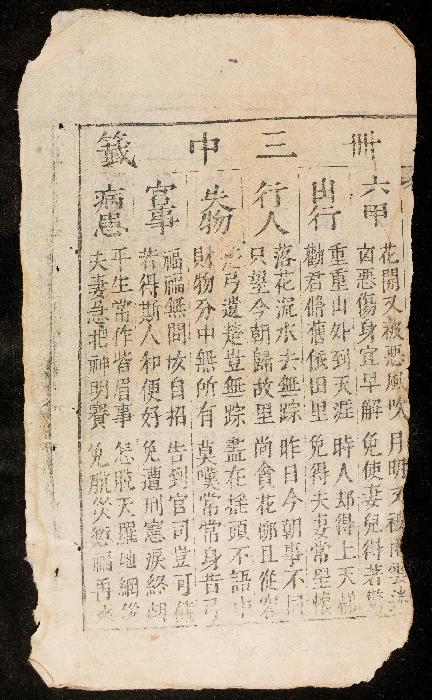 卌三中籤
六甲
花開又被惡風吹 月明又被雨雲
凶惡傷身宜早解 免使妻兒得若
出行
重重山外到天涯 時人却得上天梯
勸君將舊依田里 免得夫妻常望
行人
落花流水去無踪 昨日今朝事不同
只望今朝歸故里 尚貪花柳且從
失物
弓遺楚豈無踪 盡在搖頭不語中
財物分中無所有 莫嘆常常身昔弓
官事
禍福無問汝自招 告到官司豈可
若得斯人和便好 免遭刑憲淚終
病患
平生常作皆眉事 怎脫天羅地網
夫妻急把神明賽 免脫災愆福再